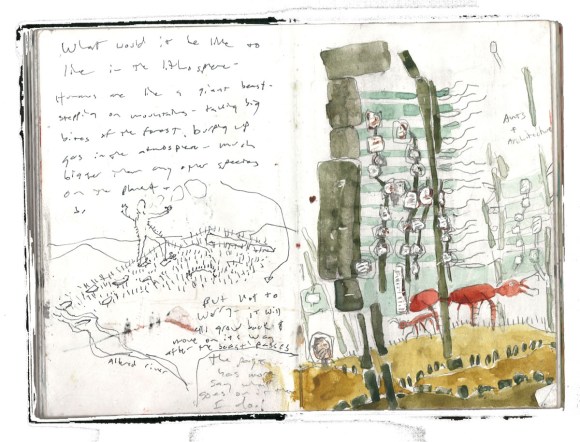 What would it be like to
live in the lithosphere -
Humans are like a giant beast -
stepping on mountains - taking big
bites of the forest, burping up
gas in the atmosphere - much
bigger than any other species
on the planet -
But not to
worry - it will
all grow back &
move on its way
after the beast passes
altered river
the
has more
say what
goes on
I do!
Ants
+
Architecture